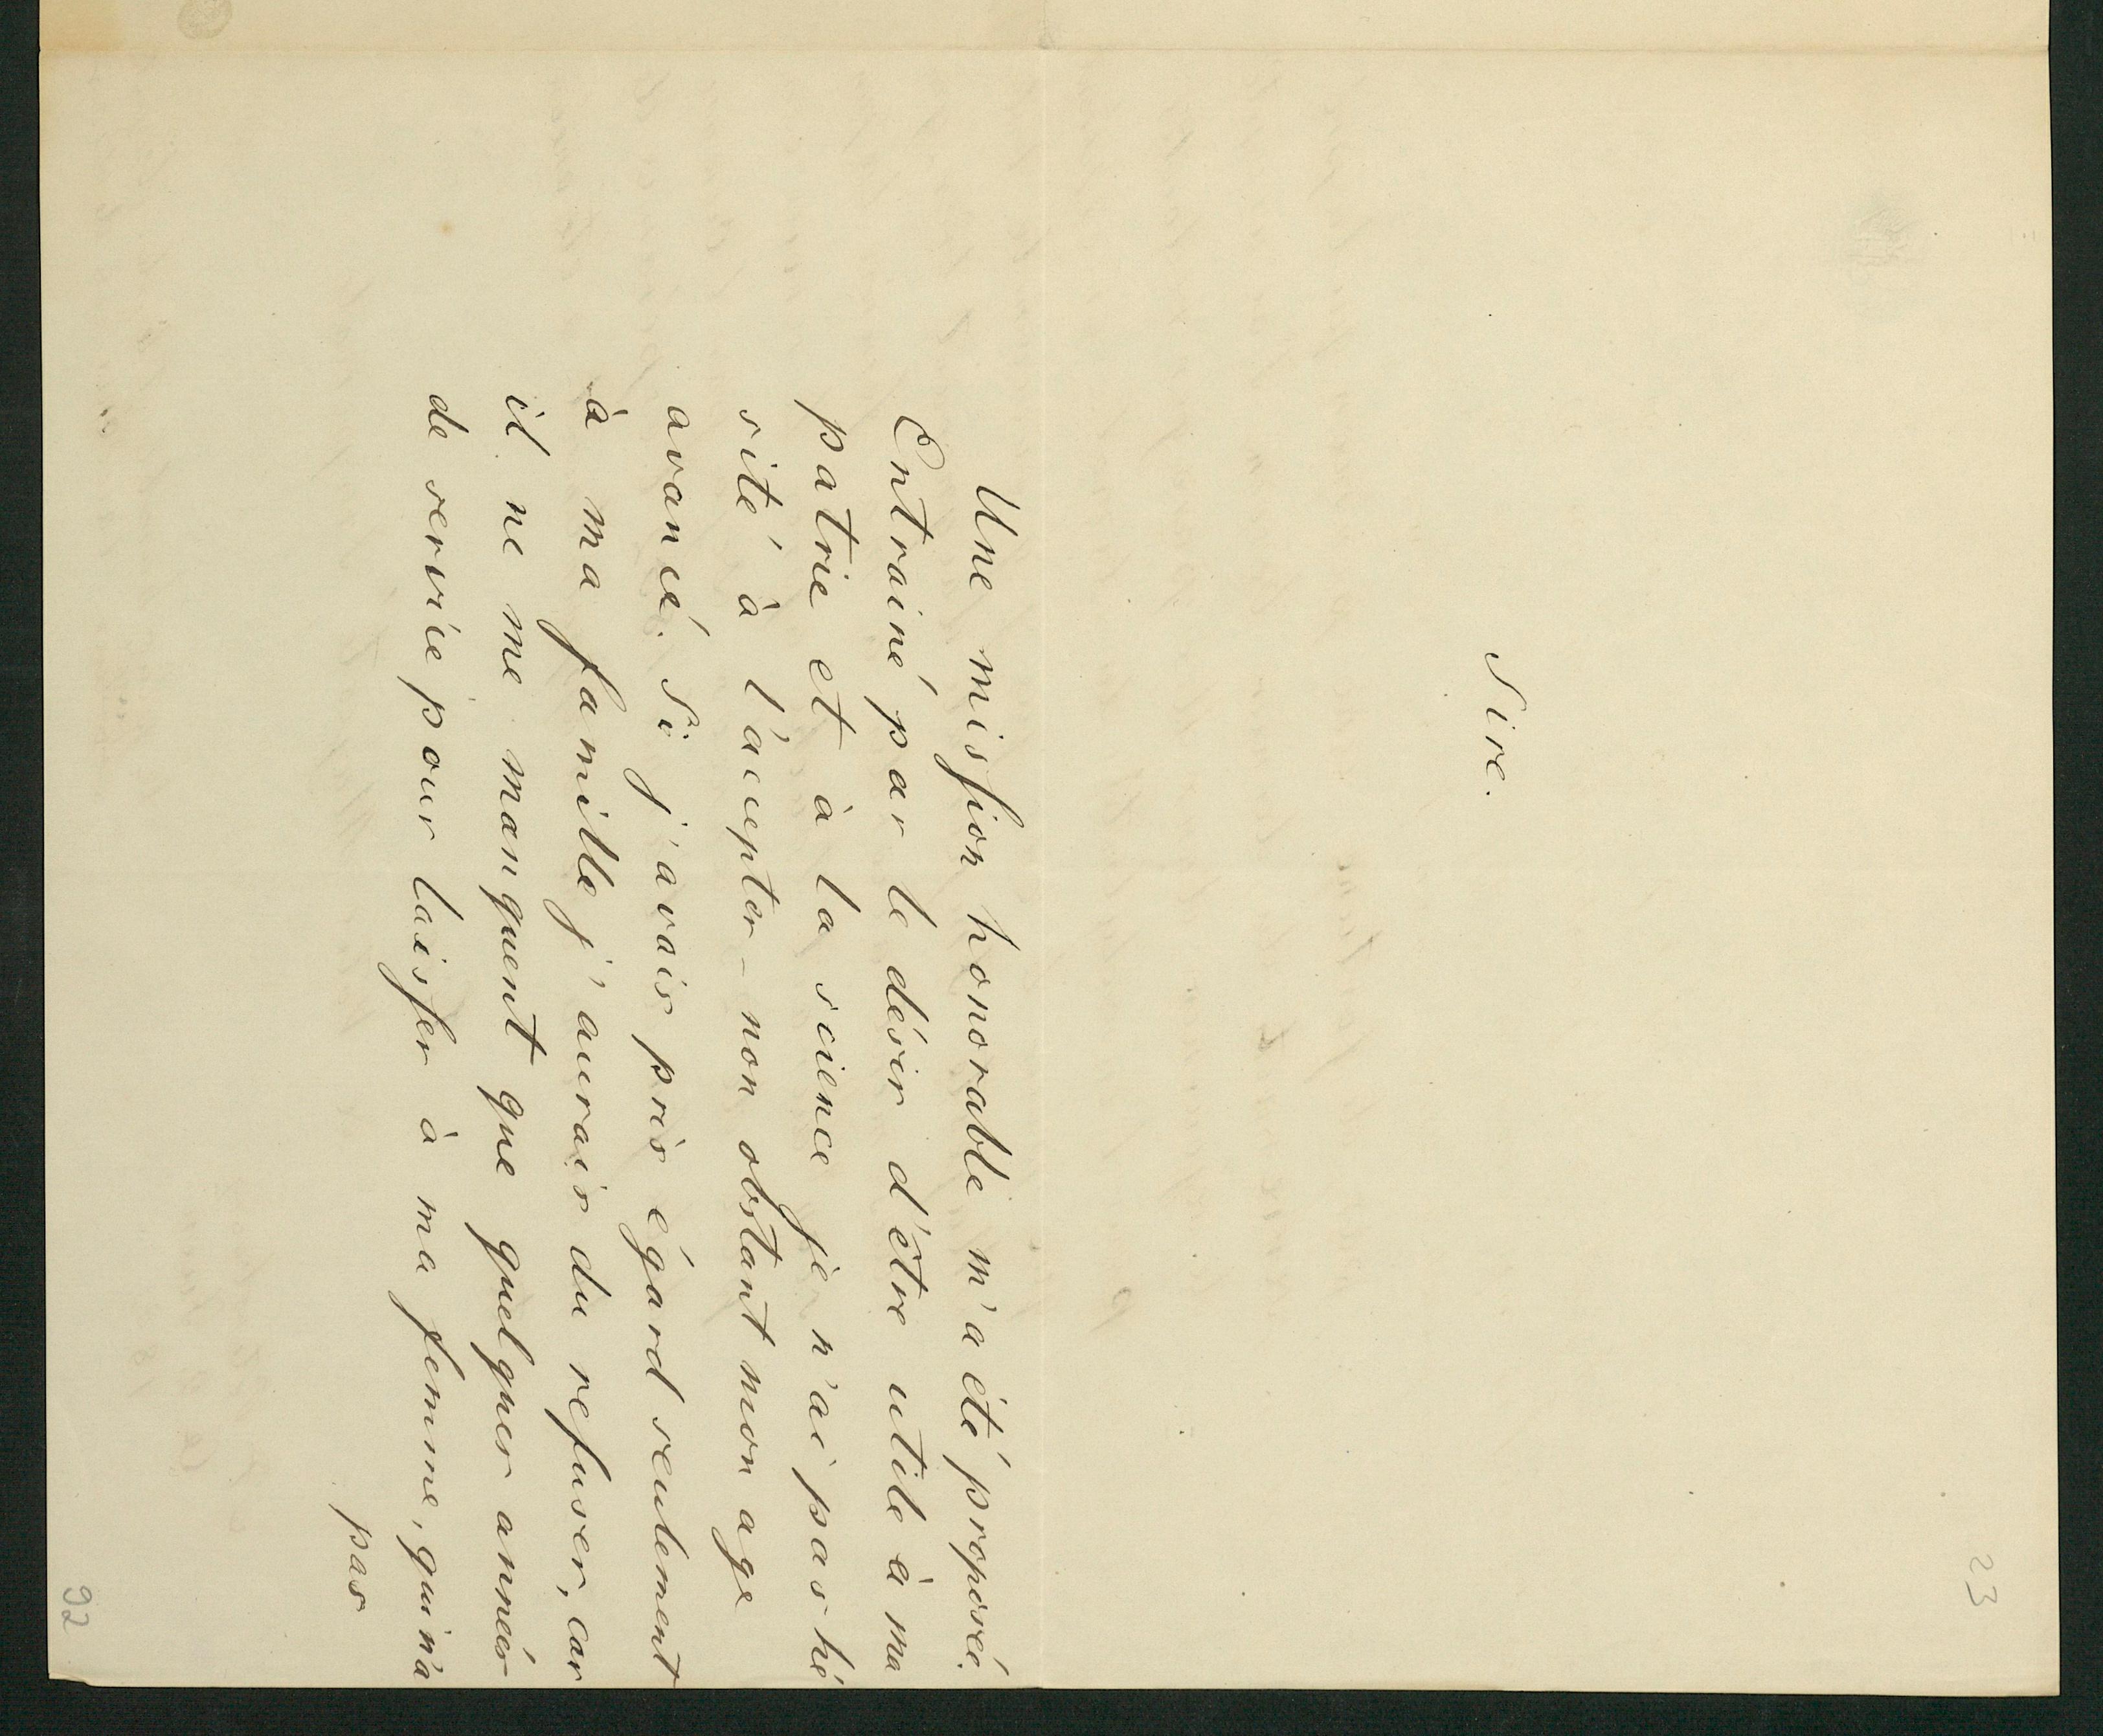 23
Sire.
Une mission honorable m'a été proposeé.
Entrainé par le désir d'être utile à ma
patrie et à la science je n'ai pas hé
sité à l'accepter - non obstant mon age
avancé. Si j'avais pris égard seulement
à ma famille j'aurais du refuser, car
il ne me manquent que quelques anneés
de service pour laisser à ma femme, qui n'a
pas
92